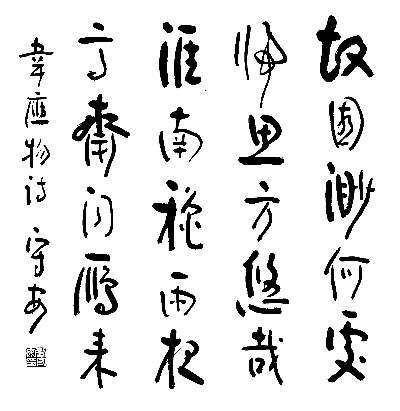 故園渺何處
歸思方悠哉
淮南秋雨夜
高齋聞雁來
韋應物詩 守安